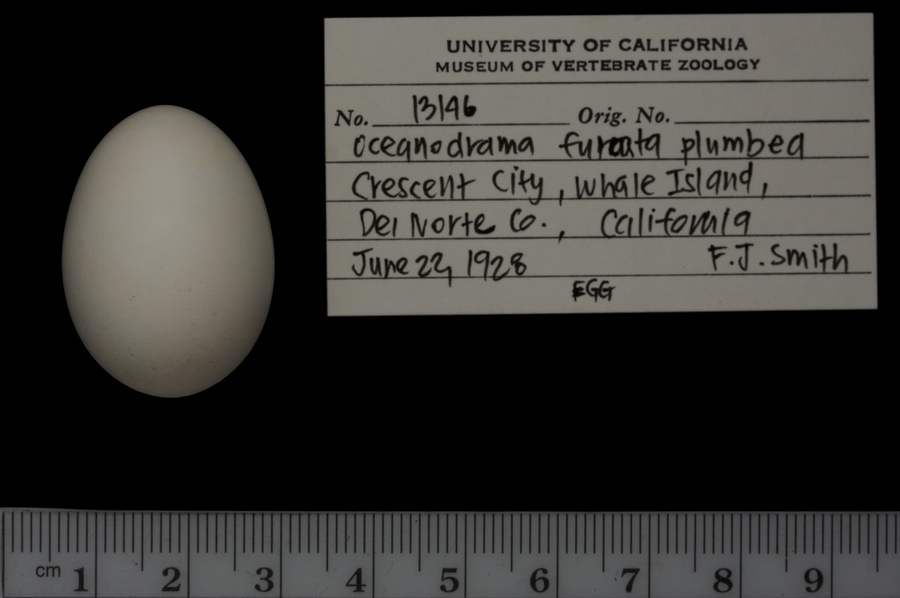 UNIVERSITY OF CALIFORNIA
MUSEUM OF VERTEBRATE ZOOLOGY
No. 13146 Orig. No.
Oceanodrama furcata plumbea
Crescent City, Whale Island,
Del Norte Co., California
June 22, 1928 F.J. Smith
EGG
cm 1 2 3 4 5 6 7 8 9